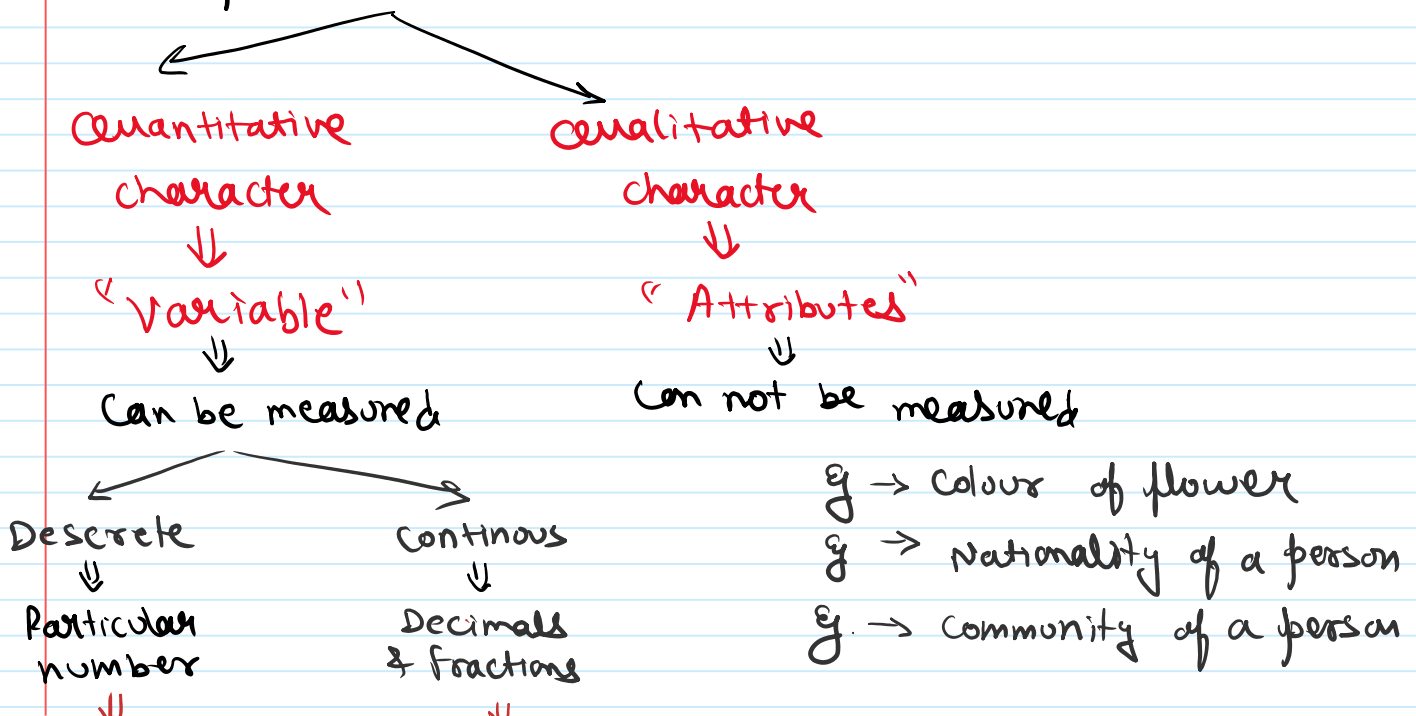 Quantitative
character
⇓
"Variable"
⇓
Can be measured
Descrete
⇓
Particular
number
⇓
Continous
⇓
Decimals
& fractions
⇓
Qualitative
character
⇓
"Attributes"
⇓
Can not be measured
Eg → Colour of flower
Eg → Nationality of a person
Eg. → Community of a person